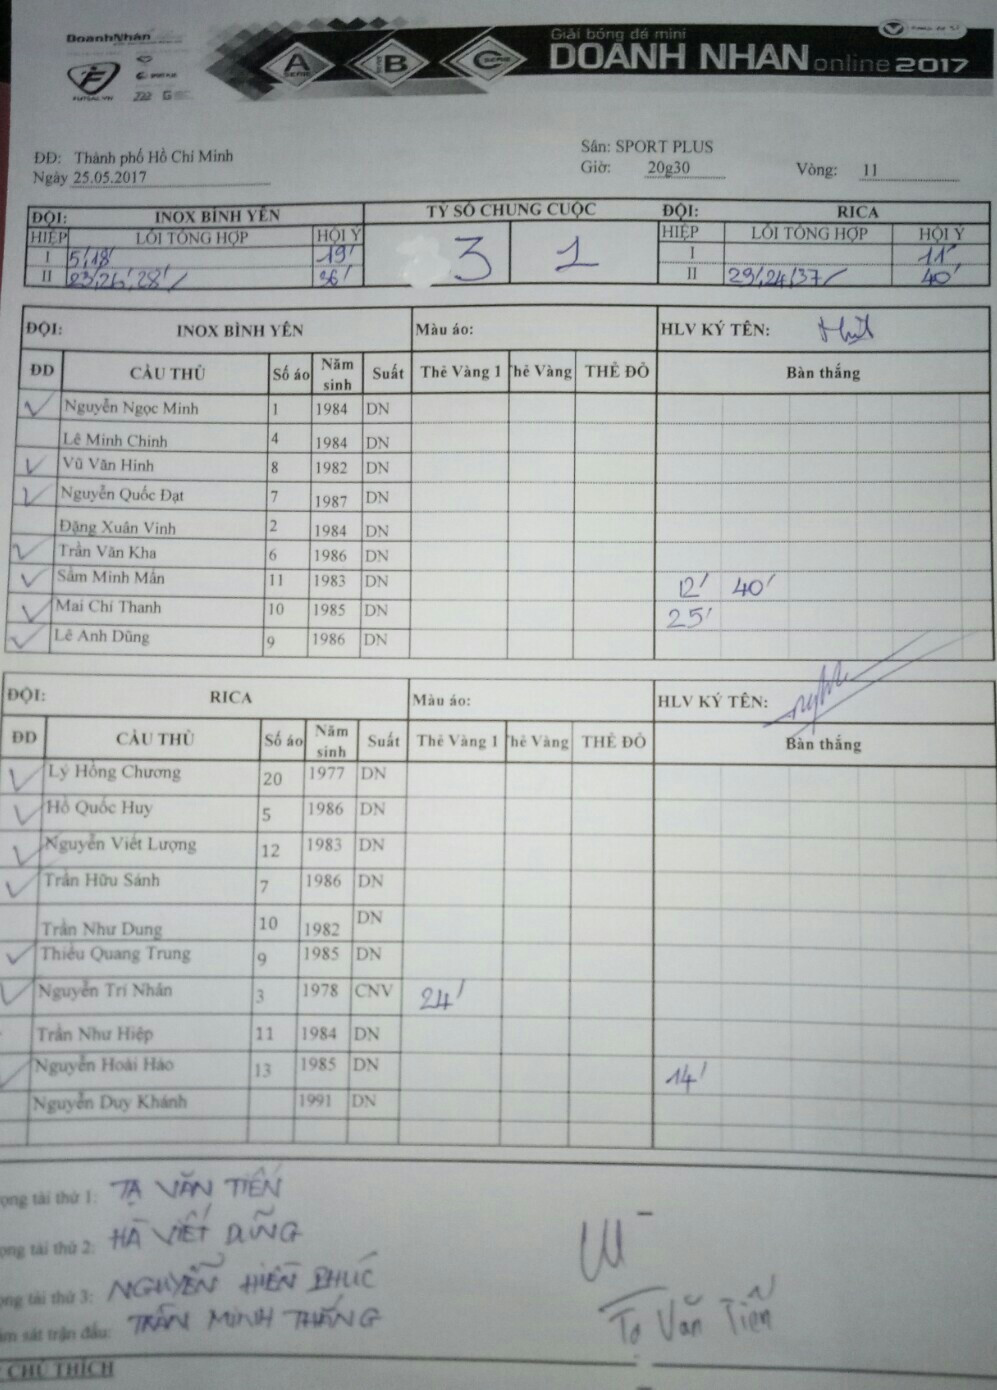 DoanhNhân
FUTSAL.VN
A SERIE
B
C SERIE
Giải bóng đá mini
DOANH NHAN online 2017
ĐĐ: Thành phố Hồ Chí Minh
Sân: SPORT PLUS
Ngày 25.05.2017
Giờ: 20g30
Vòng: 11
ĐỘI: INOX BÌNH YÊN TỶ SỐ CHUNG CUỘC ĐỘI: RICA
HIỆP LỖI TỔNG HỢP HỘI Ý 3 1 HIỆP LỖI TỔNG HỢP HỘI Ý
I 5',18' 19' I 11'
II 23',26',28' 36' II 23',24',37' 40'
ĐỘI: INOX BÌNH YÊN Màu áo: HLV KÝ TÊN:
ĐD CẦU THỦ Số áo Năm sinh Suất Thẻ Vàng 1 Thẻ Vàng THẺ ĐỎ Bàn thắng
Nguyễn Ngọc Minh 1 1984 DN
Lê Minh Chinh 4 1984 DN
Vũ Văn Hinh 8 1982 DN
Nguyễn Quốc Đạt 7 1987 DN
Đặng Xuân Vinh 2 1984 DN
Trần Văn Kha 6 1986 DN
Sầm Minh Mẫn 11 1983 DN 12' 40'
Mai Chí Thanh 10 1985 DN 25'
Lê Anh Dũng 9 1986 DN
ĐỘI: RICA Màu áo: HLV KÝ TÊN:
ĐD CẦU THỦ Số áo Năm sinh Suất Thẻ Vàng 1 Thẻ Vàng THẺ ĐỎ Bàn thắng
Lý Hồng Chương 20 1977 DN
Hồ Quốc Huy 5 1986 DN
Nguyễn Viết Lượng 12 1983 DN
Trần Hữu Sánh 7 1986 DN
Trần Như Dung 10 1982 DN
Thiều Quang Trung 9 1985 DN
Nguyễn Trí Nhân 3 1978 CNV 24'
Trần Như Hiệp 11 1984 DN
Nguyễn Hoài Hảo 13 1985 DN 14'
Nguyễn Duy Khánh 1991 DN
ọng tài thứ 1: TẠ VĂN TIẾN
ọng tài thứ 2: HÀ VIẾT DŨNG
ọng tài thứ 3: NGUYỄN HIỀN PHÚC
ám sát trận đấu: TRẦN MINH THẮNG
Tạ Văn Tiến
CHÚ THÍCH